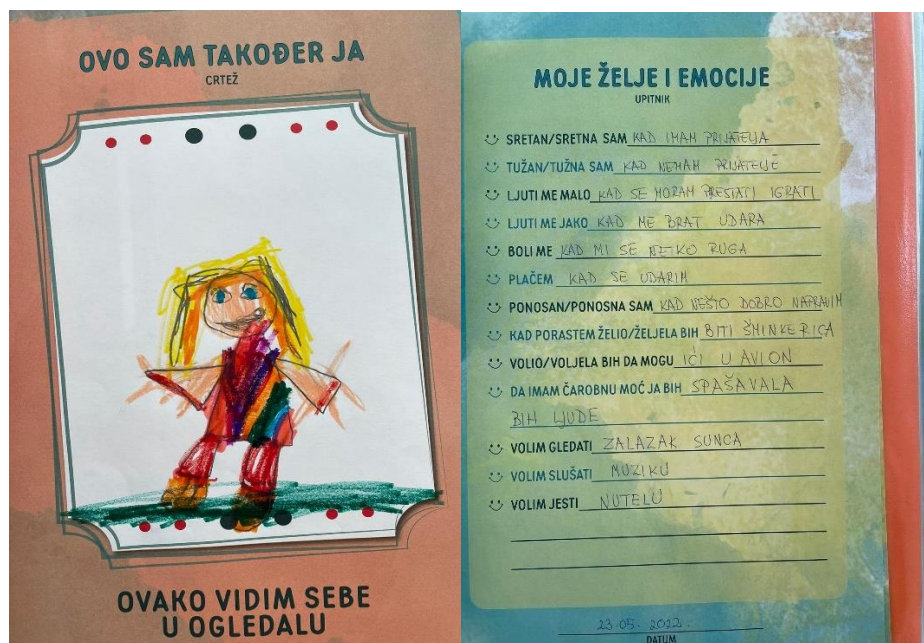 OVO SAM TAKOĐER JA
CRTEŽ
OVAKO VIDIM SEBE
U OGLEDALU
MOJE ŽELJE I EMOCIJE
UPITNIK
SRETAN/SRETNA SAM KAD IMAM PRIJATELJA
TUŽAN/TUŽNA SAM KAD NEMAM PRIJATELJE
LJUTI ME MALO KAD SE MORAM PRESTATI IGRATI
LJUTI ME JAKO KAD ME BRAT UDARA
BOLI ME KAD MI SE NETKO RUGA
PLAČEM KAD SE UDARIM
PONOSAN/PONOSNA SAM KAD NEŠTO DOBRO NAPRAVIM
KAD PORASTEM ŽELIO/ŽELJELA BIH BITI ŠMINKERICA
VOLIO/VOLJELA BIH DA MOGU IĆI U AVION
DA IMAM ČAROBNU MOĆ JA BIH SPAŠAVALA
BIH LJUDE
VOLIM GLEDATI ZALAZAK SUNCA
VOLIM SLUŠATI MUZIKU
VOLIM JESTI NUTELU
23.05.2022.
DATUM